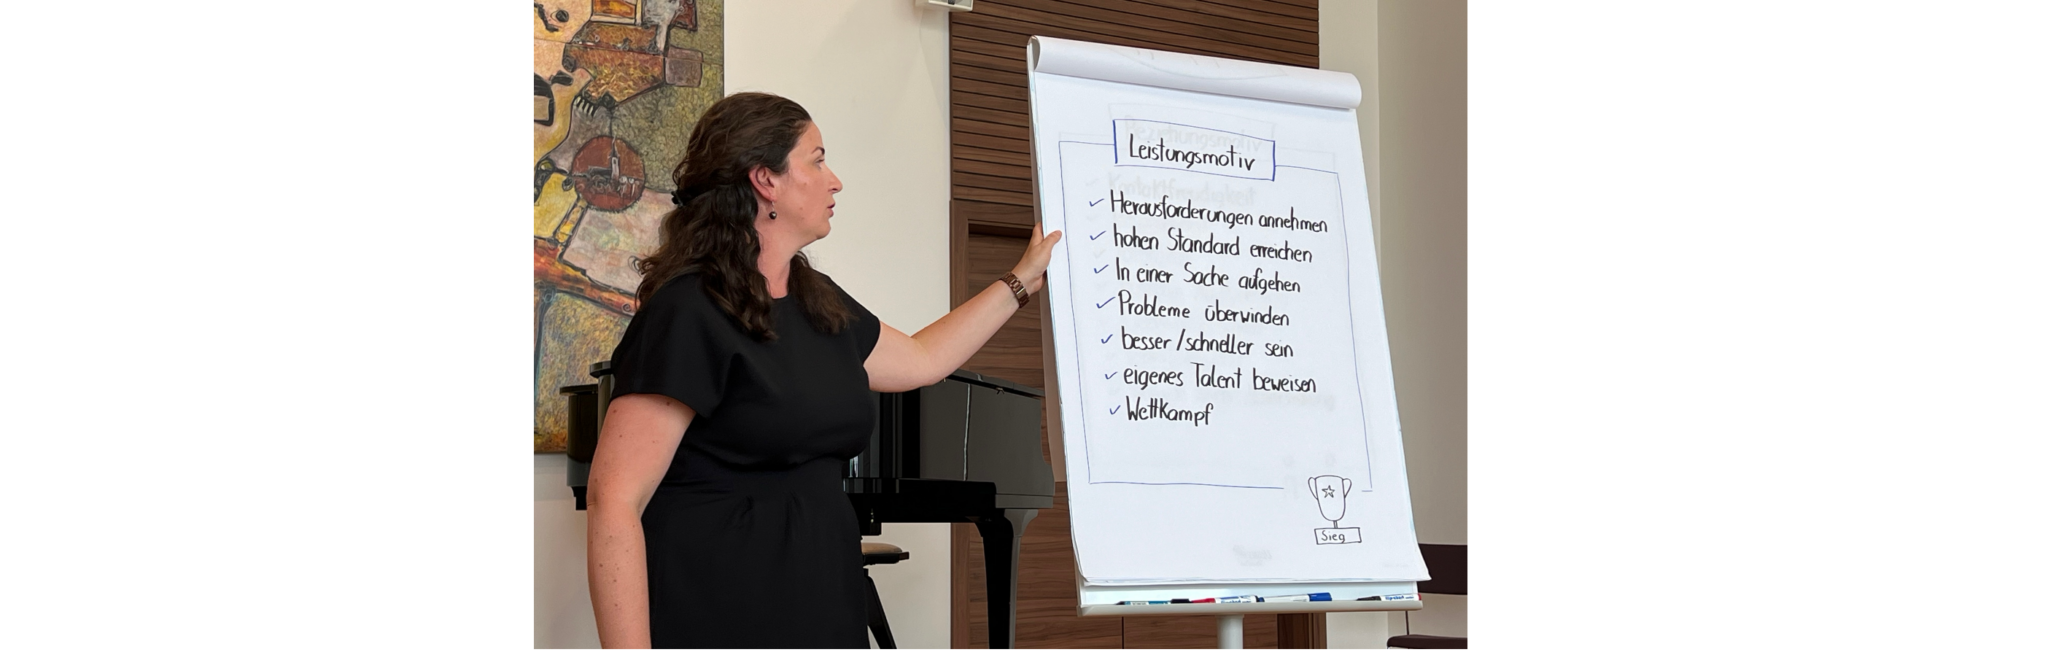 Leistungsmotiv
Herausforderungen annehmen
hohen Standard erreichen
In einer Sache aufgehen
Probleme überwinden
besser/schneller sein
eigenes Talent beweisen
Wettkampf
Sieg